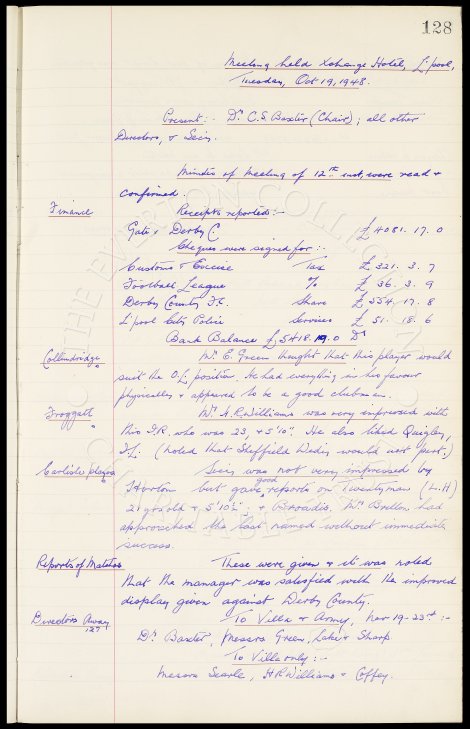 128
Meeting held Xchange Hotel, L'pool,
Tuesday, Oct 19, 1948.
Present:- Dr. C.S. Baxter (Chair); all other
Directors, & Secy.
Minutes of meeting of 12th inst, were read &
confirmed.
Finance Receipts reported:-
Gate Derby C £4081. 17. 0
Cheques were signed for:-
Customs & Excise Tax £321. 3. 7
Football League % £36. 3. 9
Derby County F.C. Share £554. 17. 8
L'pool City Police Services £51. 18. 6
Bank Balance £5418. 19. 0 Dr
Collindridge Mr E. Green thought that this player would
suit the O.L. position. He had everything in his favour
physically & appeared to be a good clubman.
Froggatt " Mr. H.R. Williams was very impressed with
this I.R. who was 23, & 5'10". He also liked Quigley,
I.L. (noted that Sheffield Wedns would not part.)
Carlisle players Secy was not very impressed by
Horton but gave good reports on Twentyman (L.H)
21 yrs old & 5'10½", & Broadis. Mr. Britton had
approached the last named without immediate
success.
Reports of Matches These were given & it was noted
that the manager was satisfied with the improved
display given against Derby County.
Directors Away To Villa & Army, Nov 19-23rd:-
Dr. Baxter, Messrs Green, Lake & Sharp
To Villa only:-
Messrs Searle, H.R. Williams & Coffey.
THE EVERTON COLLECTION